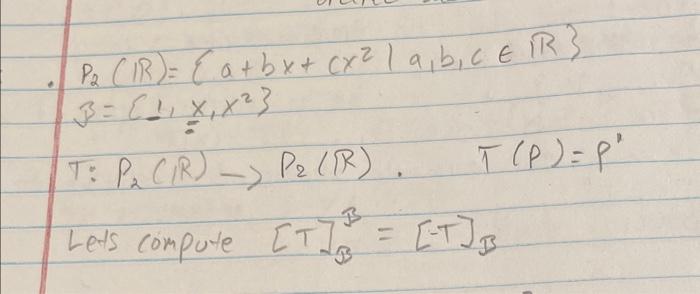 . P₂(ℝ) = { a + bx + cx² | a, b, c ∈ ℝ }
β = { 1, x, x² }
T: P₂(ℝ) → P₂(ℝ). T(p) = p'
Lets compute [T]_β^β = [T]_β